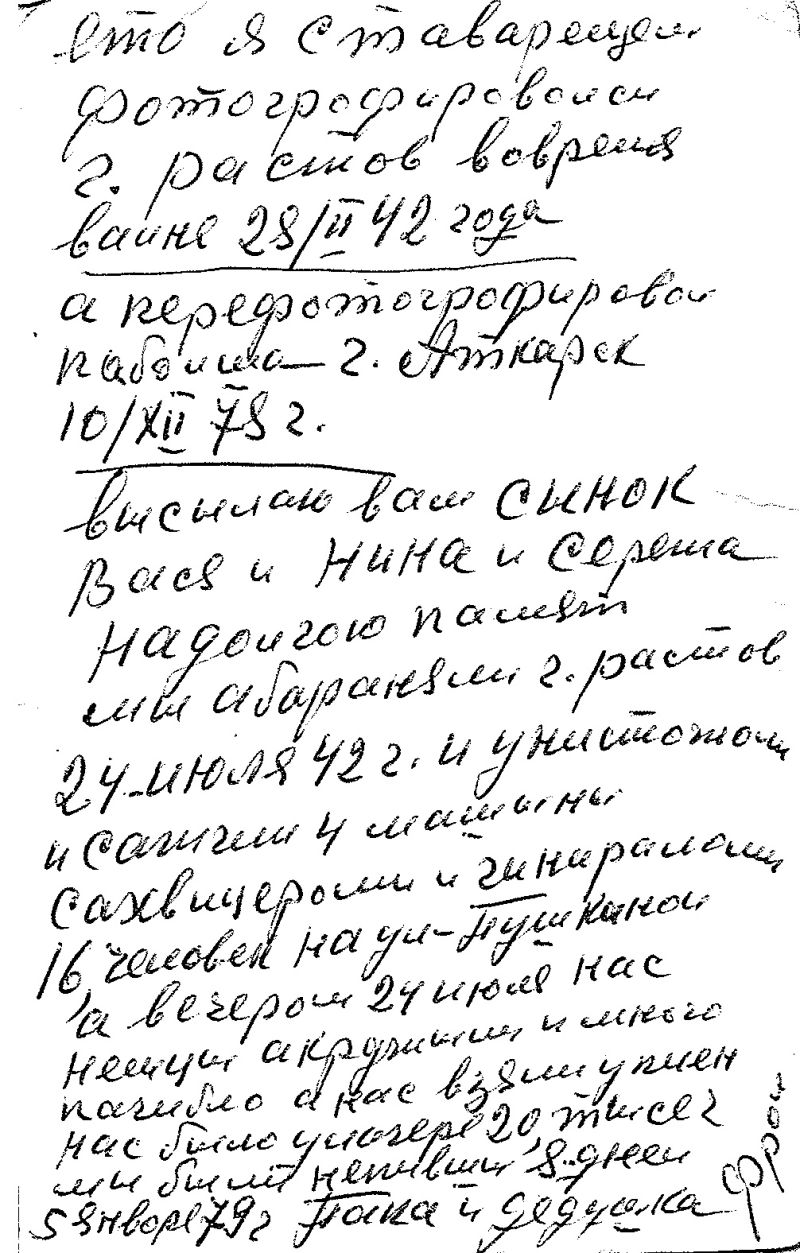 ето я ставарещем
фотографировалси
г. растов вовремя
ваине 28/II 42 года
а перефотографировал
г. Аткарск
10/XII 78 г.
высылаю вам сынок
Вася и Нина и Сережа
надолгою памят
мы абараняли г. растов
24 июля 42 г. и унистожали
и сажгли 4 машыны
сахвицерами и гиниралами
16 человек на ул-Пушкиной
а вечером 24 июля нас
немцы акружили и много
пагибло а нас взяли уплен
нас было улагере 20, тысеч
мы были непивши 8 дней
5 январе 79 г Папа и дедушка